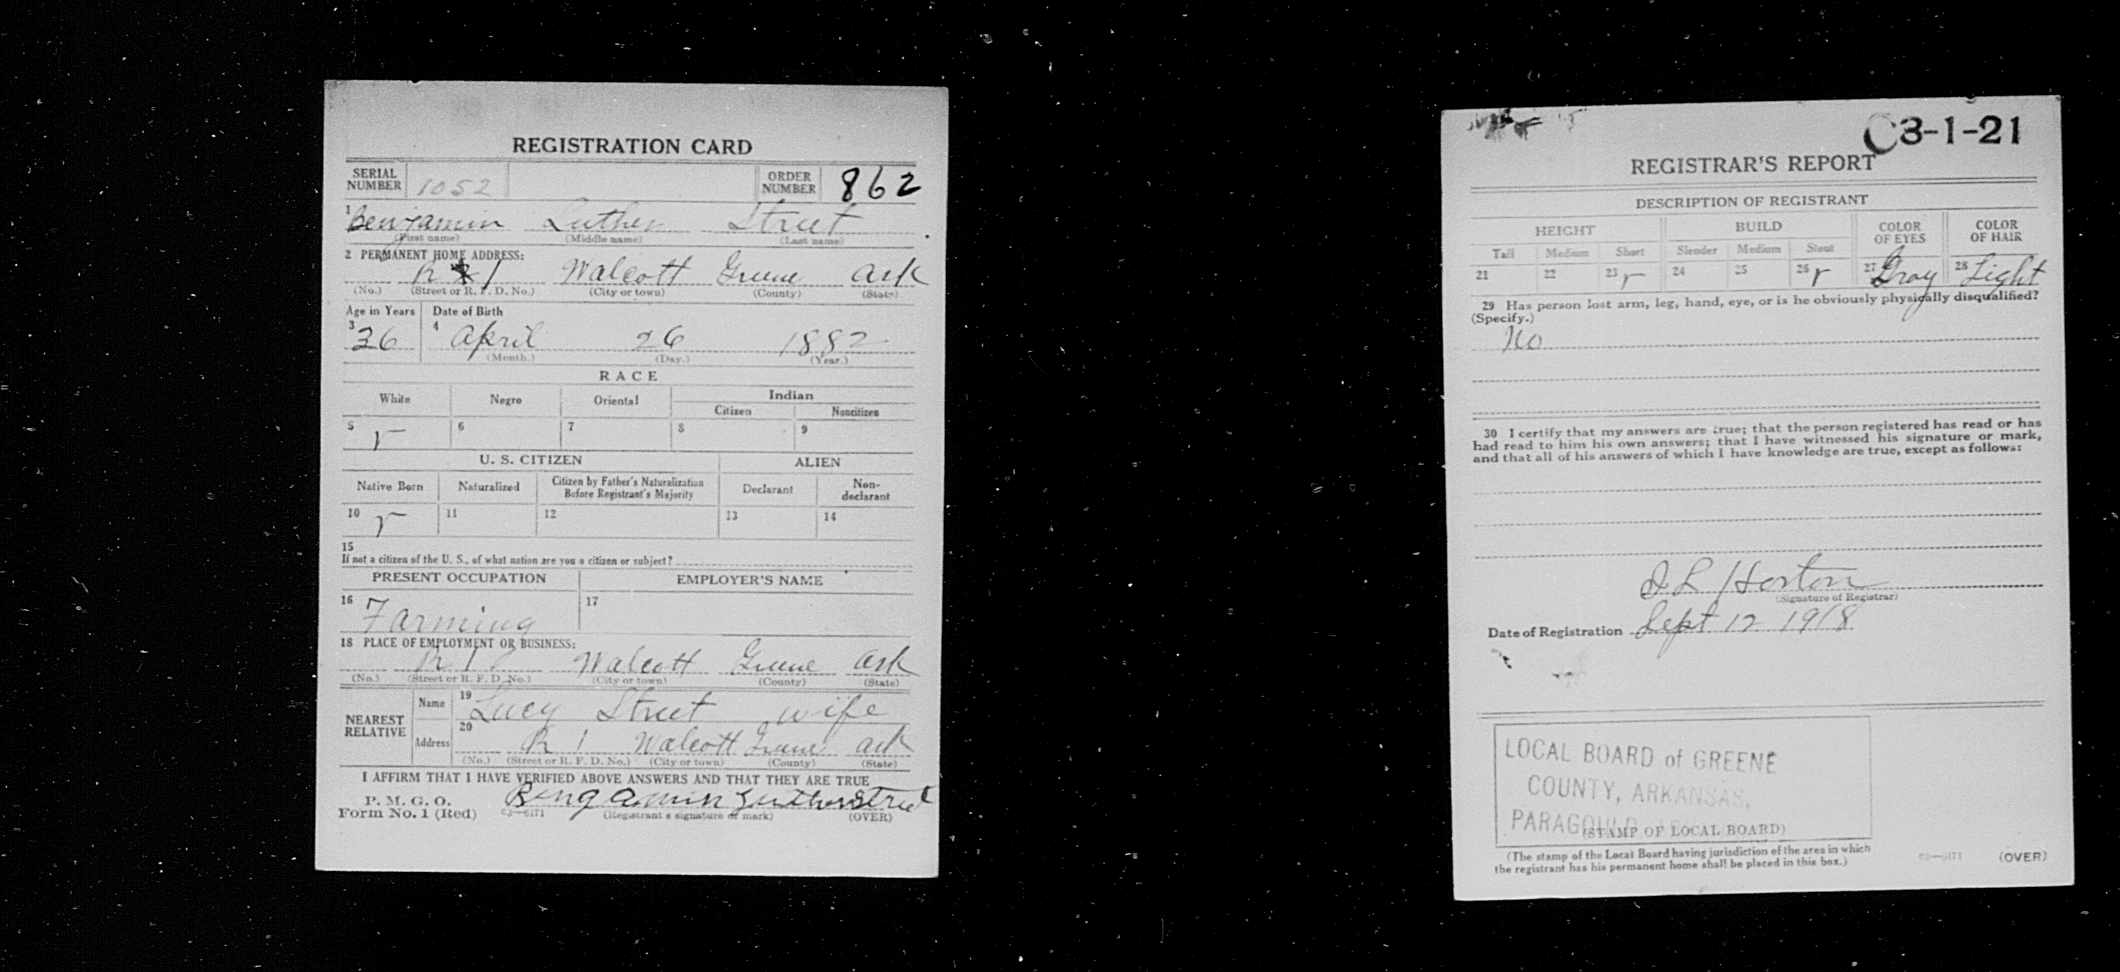 REGISTRATION CARD
SERIAL NUMBER 1052 ORDER NUMBER 862
1 Benjamin Luther Street
(First name) (Middle name) (Last name)
2 PERMANENT HOME ADDRESS:
R 1 Walcott Greene Ark
(No.) (Street or R. F. D. No.) (City or town) (County) (State)
Age in Years Date of Birth
3 36 4 April 26 1882
(Month.) (Day.) (Year.)
RACE
White Negro Oriental Indian
Citizen Noncitizen
5 6 7 8 9
U. S. CITIZEN ALIEN
Native Born Naturalized Citizen by Father's Naturalization Before Registrant's Majority Declarant Non-declarant
10 11 12 13 14
15
If not a citizen of the U. S., of what nation are you a citizen or subject?
PRESENT OCCUPATION EMPLOYER'S NAME
16 Farming 17
18 PLACE OF EMPLOYMENT OR BUSINESS:
R 1 Walcott Greene Ark
(No.) (Street or R. F. D. No.) (City or town) (County) (State)
NEAREST RELATIVE Name 19 Lucy Street wife
Address 20 R 1 Walcott Greene Ark
(No.) (Street or R. F. D. No.) (City or town) (County) (State)
I AFFIRM THAT I HAVE VERIFIED ABOVE ANSWERS AND THAT THEY ARE TRUE
P. M. G. O.
Form No. 1 (Red) 03—6171 Bengamin Luther Street
(Registrant's signature or mark) (OVER)
C3-1-21
REGISTRAR'S REPORT
DESCRIPTION OF REGISTRANT
HEIGHT BUILD COLOR OF EYES COLOR OF HAIR
Tall Medium Short Slender Medium Stout
21 22 23 24 25 26 27 Gray 28 Light
29 Has person lost arm, leg, hand, eye, or is he obviously physically disqualified?
(Specify.)
No
30 I certify that my answers are true; that the person registered has read or has
had read to him his own answers; that I have witnessed his signature or mark,
and that all of his answers of which I have knowledge are true, except as follows:
L Horton
(Signature of Registrar)
Date of Registration Sept 12 1918
LOCAL BOARD of GREENE
COUNTY, ARKANSAS,
PARAGOULD
(STAMP OF LOCAL BOARD)
(The stamp of the Local Board having jurisdiction of the area in which
the registrant has his permanent home shall be placed in this box.)
03—6171 (OVER)